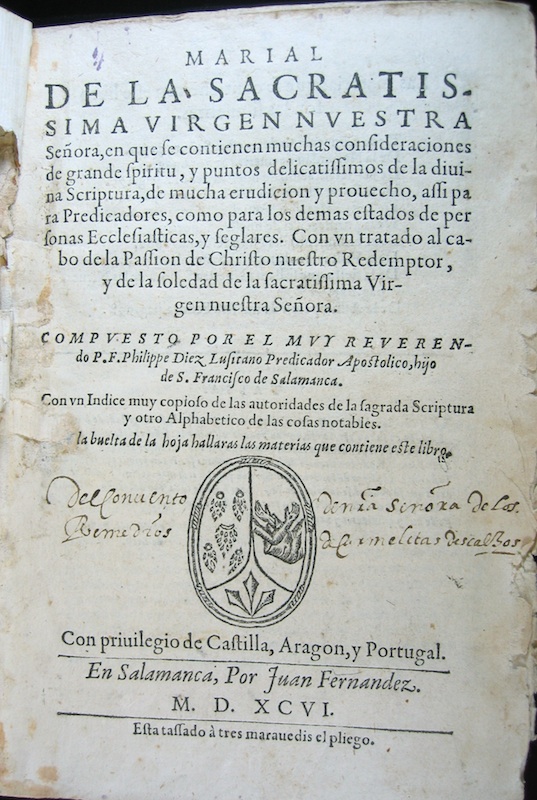 MARIAL
DE LA SACRATIS-
SIMA VIRGEN NVESTRA
Señora, en que ſe contienen muchas conſideraciones
de grande ſpiritu, y puntos delicatiſsimos de la diui-
na Scriptura, de mucha erudicion y prouecho, aſsi pa
ra Predicadores, como para los demas eſtados de per
ſonas Eccleſiaſticas, y ſeglares. Con vn tratado al ca-
bo de la Paſsion de Chriſto nueſtro Redemptor,
y de la ſoledad de la ſacratiſsima Vir-
gen nueſtra Señora.
COMPVESTO POR EL MVY REVEREN-
do P. F. Philippe Diez Luſitano Predicador Apoſtolico, hijo
de S. Franciſco de Salamanca.
Con vn Indice muy copioſo de las autoridades de la ſagrada Scriptura
y otro Alphabetico de las coſas notables.
la buelta de la hoja hallaras las materias que contiene eſte libro.
Del Conuento de nra Señora de los
Remedios de Carmelitas Descalços
Con priuilegio de Caſtilla, Aragon, y Portugal.
En Salamanca, Por Juan Fernandez.
M. D. XCVI.
Eſta taſſado à tres marauedis el pliego.